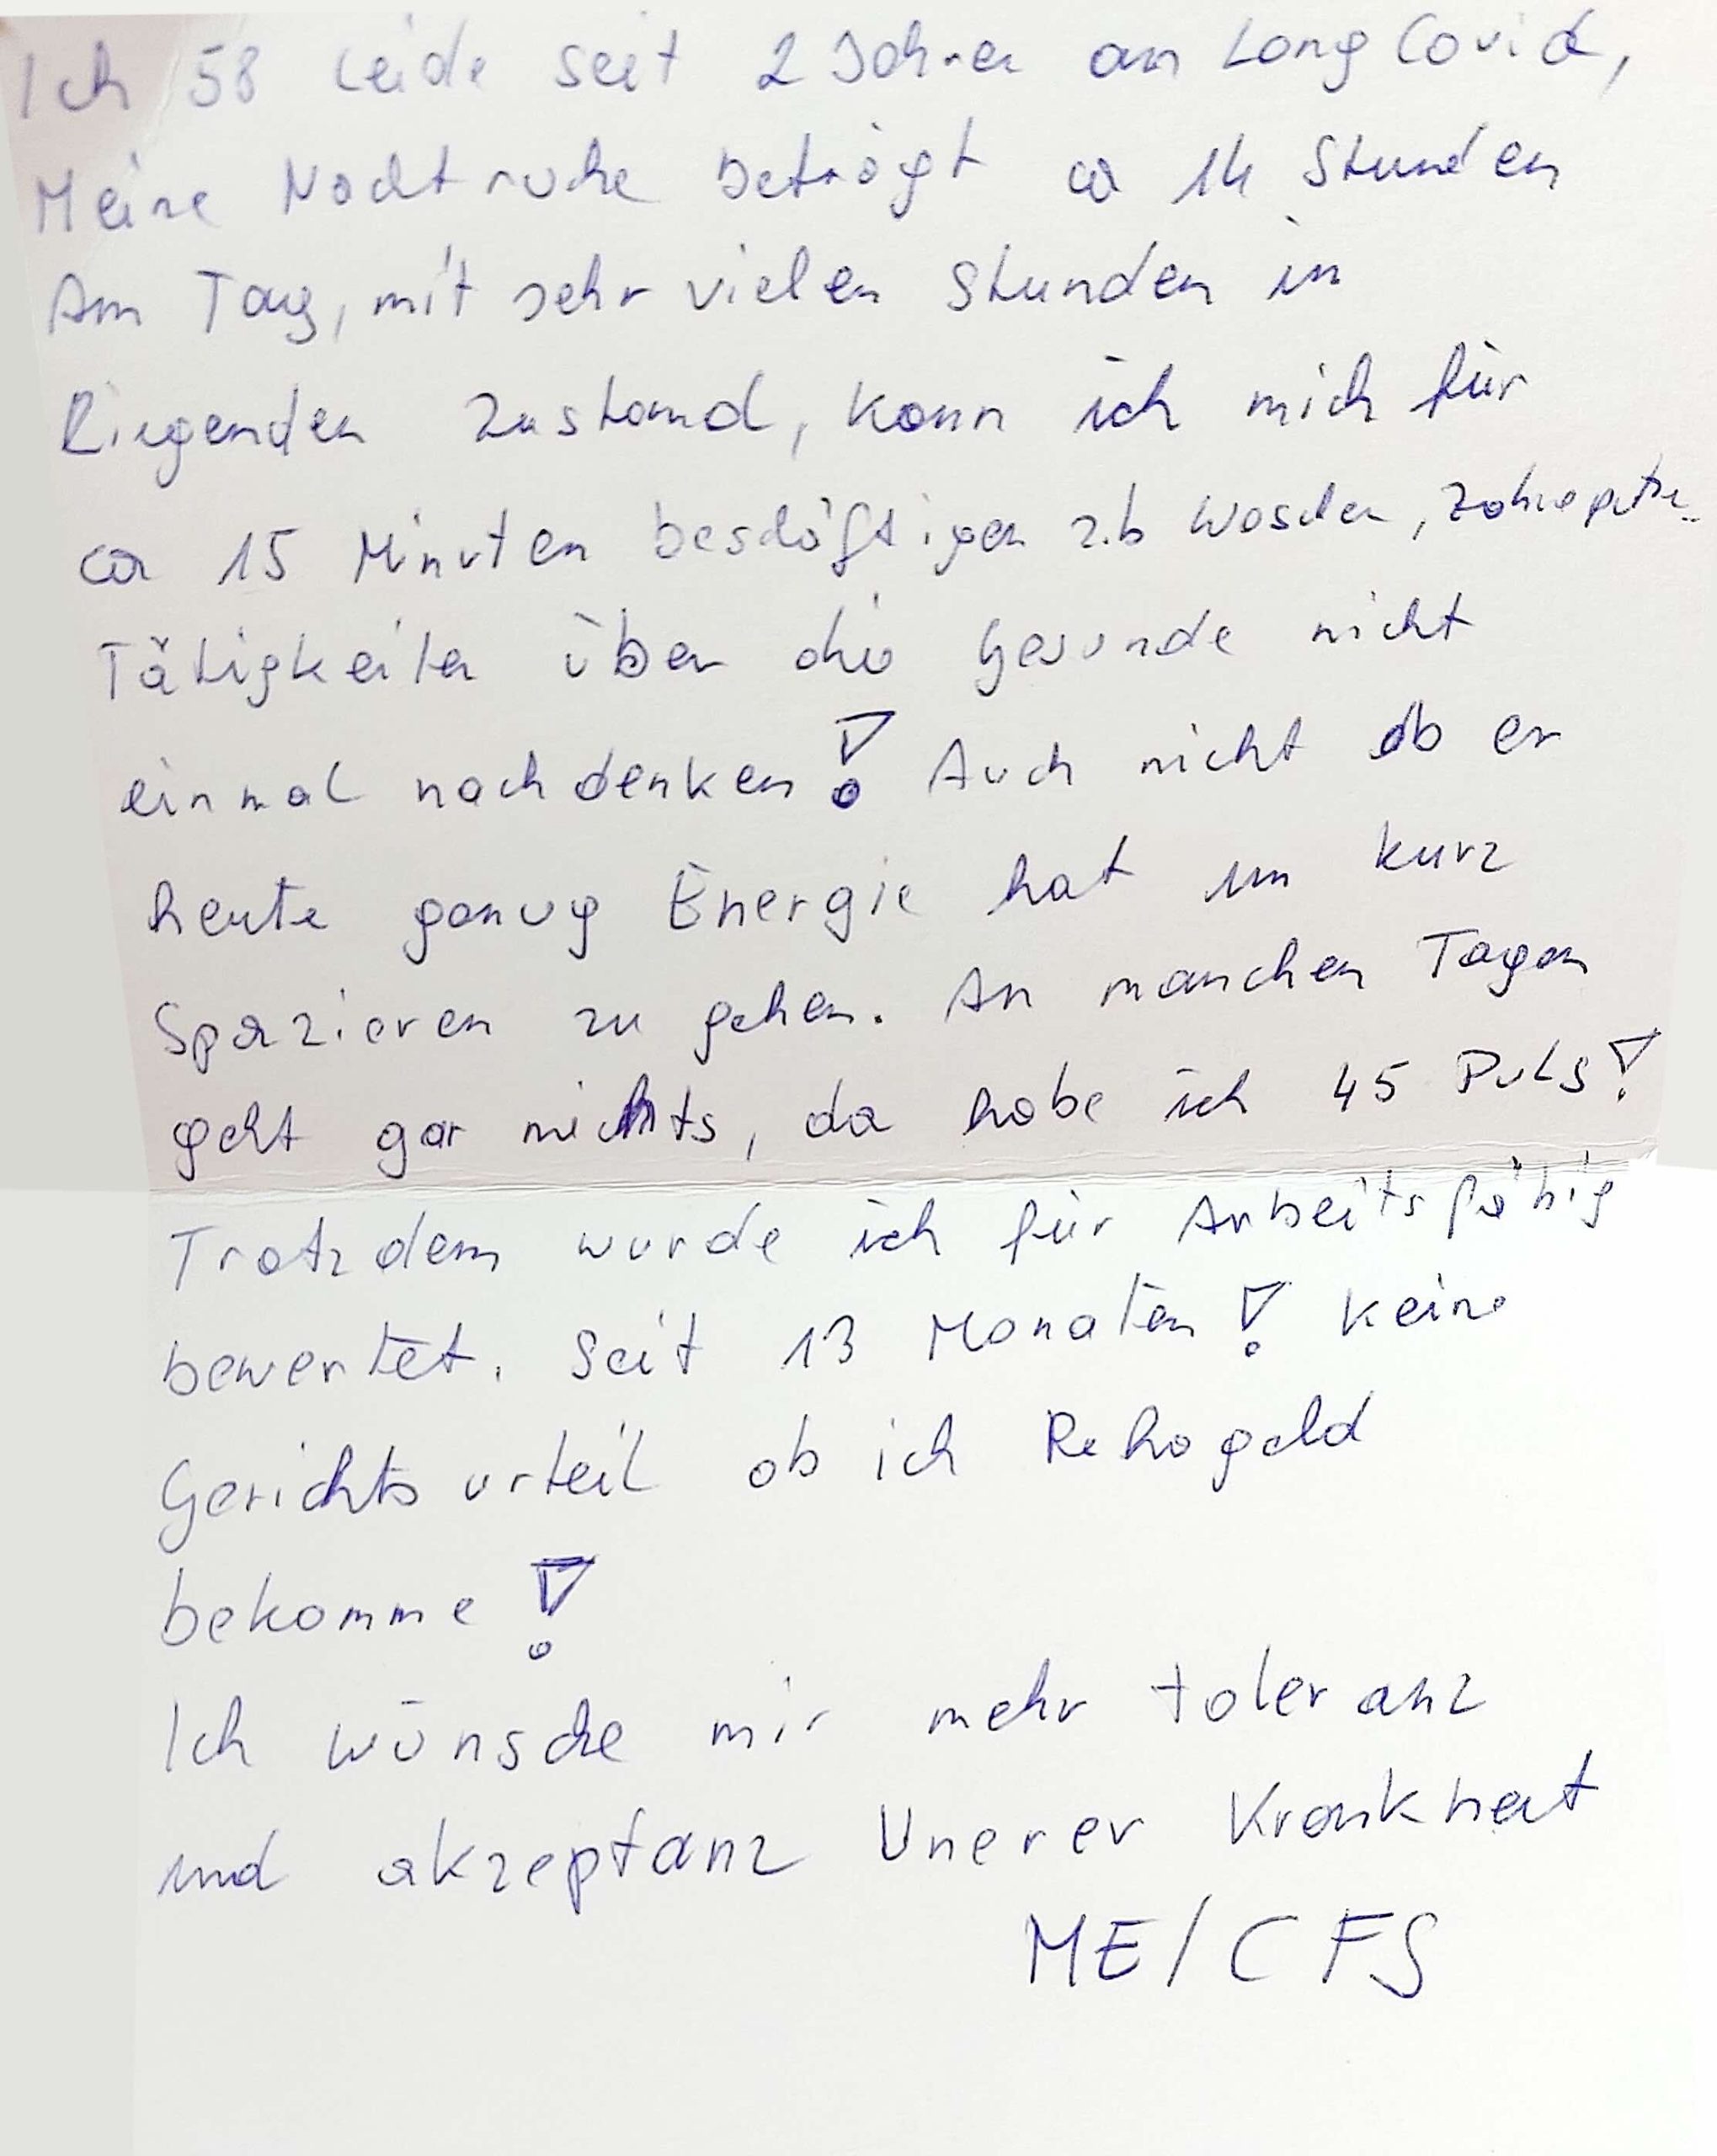 Ich 58 Leide seit 2 Jahren an Long Covid,
Meine Nachtruhe beträgt ca 14 Stunden
Am Tag, mit sehr vielen Stunden in
Liegenden Zustand, kann ich mich für
ca 15 Minuten beschäftigen z.b Waschen, Zähneputzen
Tätigkeiten über die Gesunde nicht
einmal nachdenken! Auch nicht ob er
heute genug Energie hat um kurz
Spazieren zu gehen. An manchen Tagen
geht gar nichts, da habe ich 45 Puls!
Trotzdem wurde ich für Arbeitsfähig
bewertet. Seit 13 Monaten! keine
Gerichtsurteil ob ich Rehageld
bekomme!
Ich wünsche mir mehr toleranz
und akzeptanz Unerer Krankheit
ME/CFS